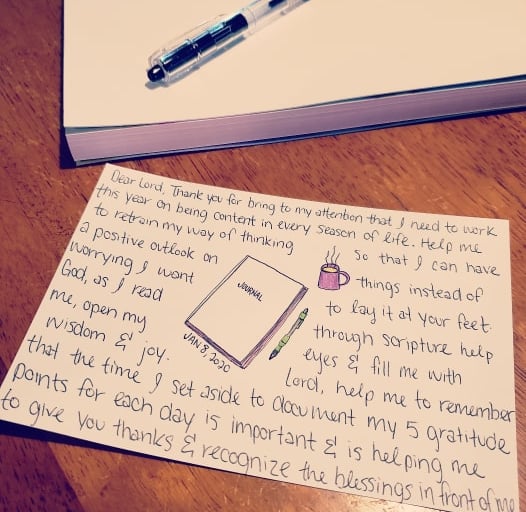 Dear Lord, Thank you for bring to my attention that I need to work
this year on being content in every season of life. Help me
to retrain my way of thinking so that I can have
a positive outlook on things instead of
worrying I want to lay it at your feet.
God, as I read through scripture help
me, open my eyes & fill me with
wisdom & joy. Lord, help me to remember
that the time I set aside to document my 5 gratitude
points for each day is important & is helping me
to give you thanks & recognize the blessings in front of me
JOURNAL
JAN 8, 2020